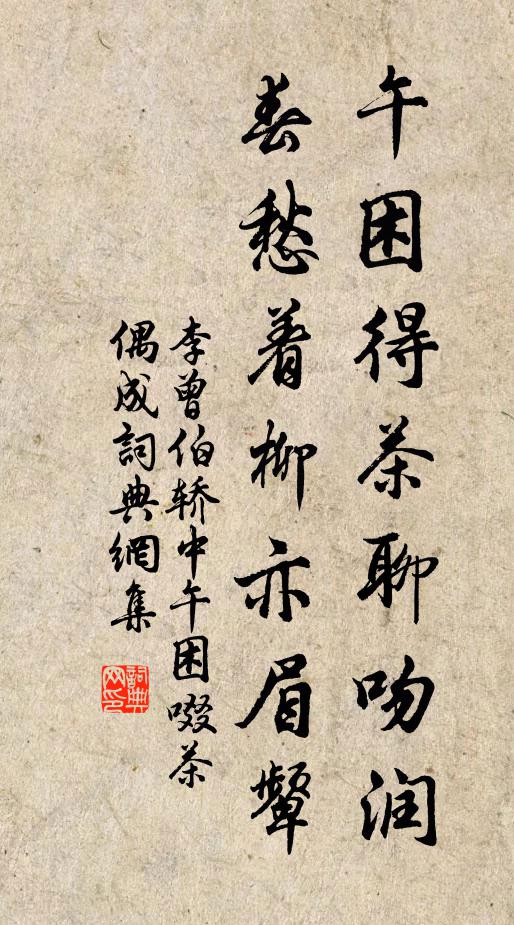 午困得茶聊吻润
春愁着柳亦眉颦
李曾伯轿中午困啜茶
偶成詞典網集
詞典网印